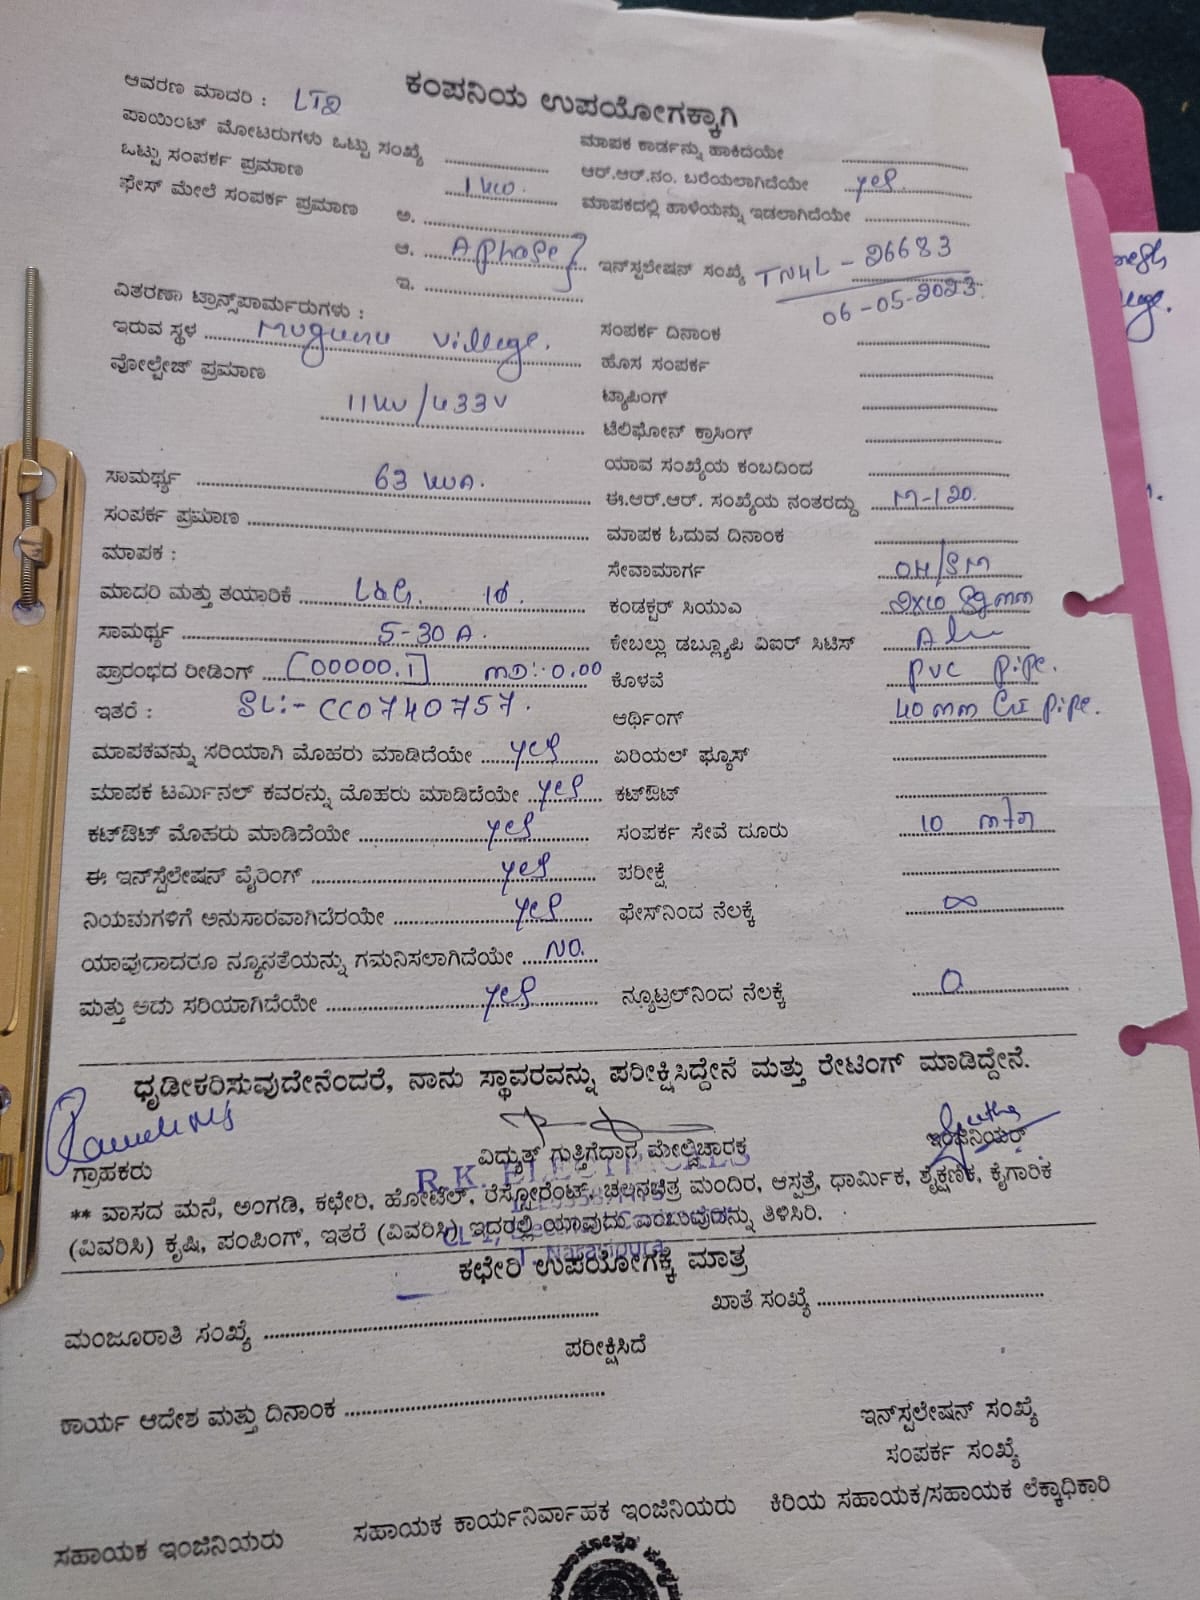 ಕಂಪನಿಯ ಉಪಯೋಗಕ್ಕಾಗಿ
ಆವರಣ ಮಾದರಿ : LT2
ಪಾಯಿಂಟ್ ಮೋಟರುಗಳು ಒಟ್ಟು ಸಂಖ್ಯೆ ............
ಒಟ್ಟು ಸಂಪರ್ಕ ಪ್ರಮಾಣ 1 kw.
ಫೇಸ್ ಮೇಲೆ ಸಂಪರ್ಕ ಪ್ರಮಾಣ ಅ. ............
ಆ. A phase
ಇ. ............
ವಿತರಣಾ ಟ್ರಾನ್ಸ್‌ಫಾರ್ಮರುಗಳು :
ಇರುವ ಸ್ಥಳ Muguru village.
ವೋಲ್ಟೇಜ್ ಪ್ರಮಾಣ
11kv/433V
ಸಾಮರ್ಥ್ಯ 63 kva.
ಸಂಪರ್ಕ ಪ್ರಮಾಣ ............
ಮಾಪಕ :
ಮಾದರಿ ಮತ್ತು ತಯಾರಿಕೆ L&G. 1ø.
ಸಾಮರ್ಥ್ಯ 5-30 A.
ಪ್ರಾರಂಭದ ರೀಡಿಂಗ್ [00000.1] MD: 0.00
ಇತರೆ : SL:- CC0740757.
ಮಾಪಕವನ್ನು ಸರಿಯಾಗಿ ಮೊಹರು ಮಾಡಿದೆಯೇ yes
ಮಾಪಕ ಟರ್ಮಿನಲ್ ಕವರನ್ನು ಮೊಹರು ಮಾಡಿದೆಯೇ yes
ಕಟ್‌ಔಟ್ ಮೊಹರು ಮಾಡಿದೆಯೇ yes
ಈ ಇನ್‌ಸ್ಟಲೇಷನ್ ವೈರಿಂಗ್ yes
ನಿಯಮಗಳಿಗೆ ಅನುಸಾರವಾಗಿದೆರಯೇ yes
ಯಾವುದಾದರೂ ನ್ಯೂನತೆಯನ್ನು ಗಮನಿಸಲಾಗಿದೆಯೇ NO.
ಮತ್ತು ಅದು ಸರಿಯಾಗಿದೆಯೇ yes
ಮಾಪಕ ಕಾರ್ಡನ್ನು ಹಾಕಿದೆಯೇ ............
ಆರ್.ಆರ್.ನಂ. ಬರೆಯಲಾಗಿದೆಯೇ yes.
ಮಾಪಕದಲ್ಲಿ ಹಾಳೆಯನ್ನು ಇಡಲಾಗಿದೆಯೇ ............
ಇನ್‌ಸ್ಟಲೇಷನ್ ಸಂಖ್ಯೆ TN4L - 26683
06-05-2023.
ಸಂಪರ್ಕ ದಿನಾಂಕ ............
ಹೊಸ ಸಂಪರ್ಕ ............
ಟ್ಯಾಪಿಂಗ್ ............
ಟೆಲಿಫೋನ್ ಕ್ರಾಸಿಂಗ್ ............
ಯಾವ ಸಂಖ್ಯೆಯ ಕಂಬದಿಂದ ............
ಈ.ಆರ್.ಆರ್. ಸಂಖ್ಯೆಯ ನಂತರದ್ದು M-120.
ಮಾಪಕ ಓದುವ ದಿನಾಂಕ ............
ಸೇವಾಮಾರ್ಗ OH/SM
ಕಂಡಕ್ಟರ್ ಸಿಯುವಿ
ಕೇಬಲ್ಲು ಡಬ್ಲ್ಯೂಪಿ ವಿಐರ್ ಸಿಟಿಸ್
ಕೊಳವೆ PVC pipe.
ಆರ್ಥಿಂಗ್ 40mm GI pipe.
ಏರಿಯಲ್ ಫ್ಯೂಸ್ ............
ಕಟ್‌ಔಟ್ ............
ಸಂಪರ್ಕ ಸೇವೆ ದೂರು 10
ಪರೀಕ್ಷೆ ............
ಫೇಸ್‌ನಿಂದ ನೆಲಕ್ಕೆ ∞
ನ್ಯೂಟ್ರಲ್‌ನಿಂದ ನೆಲಕ್ಕೆ 0
ಧೃಡೀಕರಿಸುವುದೇನೆಂದರೆ, ನಾನು ಸ್ಥಾವರವನ್ನು ಪರೀಕ್ಷಿಸಿದ್ದೇನೆ ಮತ್ತು ರೇಟಿಂಗ್ ಮಾಡಿದ್ದೇನೆ.
ಗ್ರಾಹಕರು ವಿದ್ಯುತ್ ಗುತ್ತಿಗೆದಾರ ಮೇಲ್ವಿಚಾರಕ ಇಂಜಿನಿಯರ್
R.K. ELECTRICALS
** ವಾಸದ ಮನೆ, ಅಂಗಡಿ, ಕಛೇರಿ, ಹೋಟೆಲ್, ರೆಸ್ಟೋರೆಂಟ್, ಚಲನಚಿತ್ರ ಮಂದಿರ, ಆಸ್ಪತ್ರೆ, ಧಾರ್ಮಿಕ, ಶೈಕ್ಷಣಿಕ, ಕೈಗಾರಿಕೆ
(ವಿವರಿಸಿ) ಕೃಷಿ, ಪಂಪಿಂಗ್, ಇತರೆ (ವಿವರಿಸಿ) ಇದ್ದರಲ್ಲಿ ಯಾವುದು ಎಂಬುವುದನ್ನು ತಿಳಿಸಿರಿ.
ಕಛೇರಿ ಉಪಯೋಗಕ್ಕೆ ಮಾತ್ರ
ಮಂಜೂರಾತಿ ಸಂಖ್ಯೆ ............ ಖಾತೆ ಸಂಖ್ಯೆ ............
ಪರೀಕ್ಷಿಸಿದೆ
ಕಾರ್ಯ ಆದೇಶ ಮತ್ತು ದಿನಾಂಕ ............
ಇನ್‌ಸ್ಟಲೇಷನ್ ಸಂಖ್ಯೆ
ಸಂಪರ್ಕ ಸಂಖ್ಯೆ
ಸಹಾಯಕ ಇಂಜಿನಿಯರು ಸಹಾಯಕ ಕಾರ್ಯನಿರ್ವಾಹಕ ಇಂಜಿನಿಯರು ಕಿರಿಯ ಸಹಾಯಕ/ಸಹಾಯಕ ಲೆಕ್ಕಾಧಿಕಾರಿ